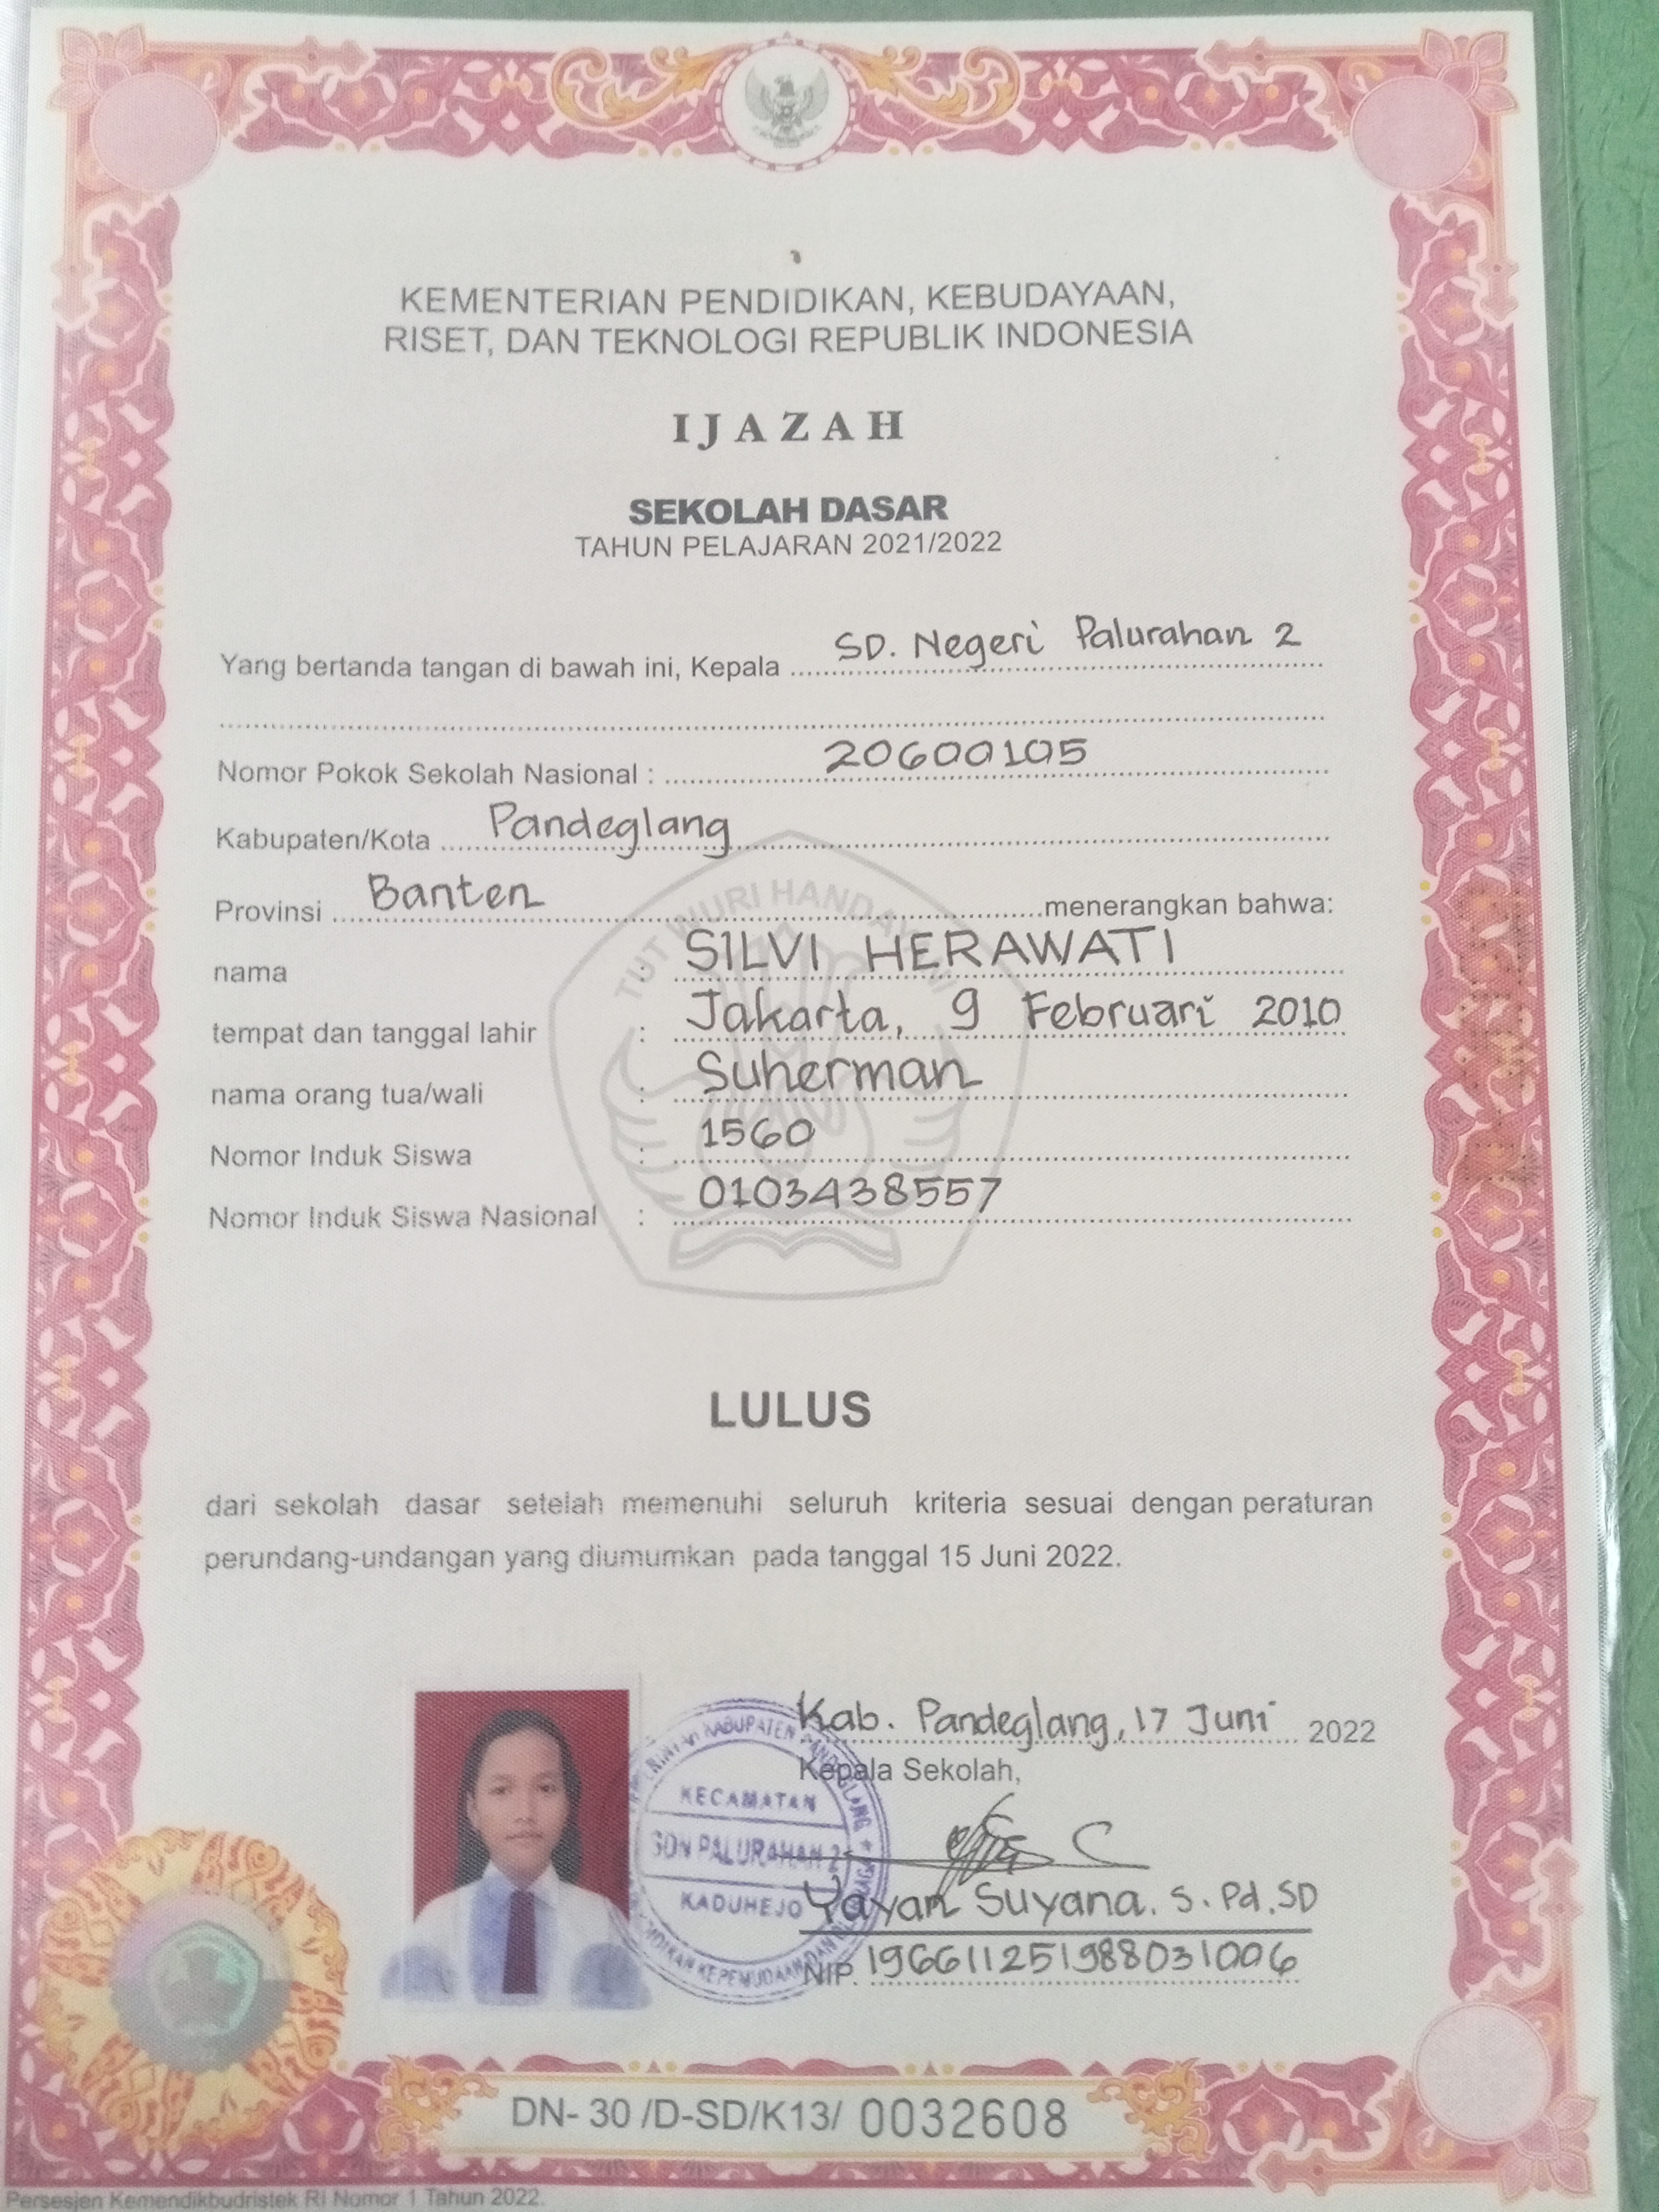 KEMENTERIAN PENDIDIKAN, KEBUDAYAAN,
RISET, DAN TEKNOLOGI REPUBLIK INDONESIA
IJAZAH
SEKOLAH DASAR
TAHUN PELAJARAN 2021/2022
Yang bertanda tangan di bawah ini, Kepala SD. Negeri Palurahan 2
Nomor Pokok Sekolah Nasional : 20600105
Kabupaten/Kota Pandeglang
Provinsi Banten menerangkan bahwa:
TUT WURI HANDAYANI
nama : SILVI HERAWATI
tempat dan tanggal lahir : Jakarta, 9 Februari 2010
nama orang tua/wali : Suherman
Nomor Induk Siswa : 1560
Nomor Induk Siswa Nasional : 0103438557
LULUS
dari sekolah dasar setelah memenuhi seluruh kriteria sesuai dengan peraturan
perundang-undangan yang diumumkan pada tanggal 15 Juni 2022.
Kab. Pandeglang, 17 Juni 2022
Kepala Sekolah,
KABUPATEN PANDEGLANG
KECAMATAN
SDN PALURAHAN 2
KADUHEJO
Yayan Suyana. S.Pd.SD
NIP. 196611251988031006
DN- 30 /D-SD/K13/ 0032608
Persesjen Kemendikbudristek RI Nomor 1 Tahun 2022.